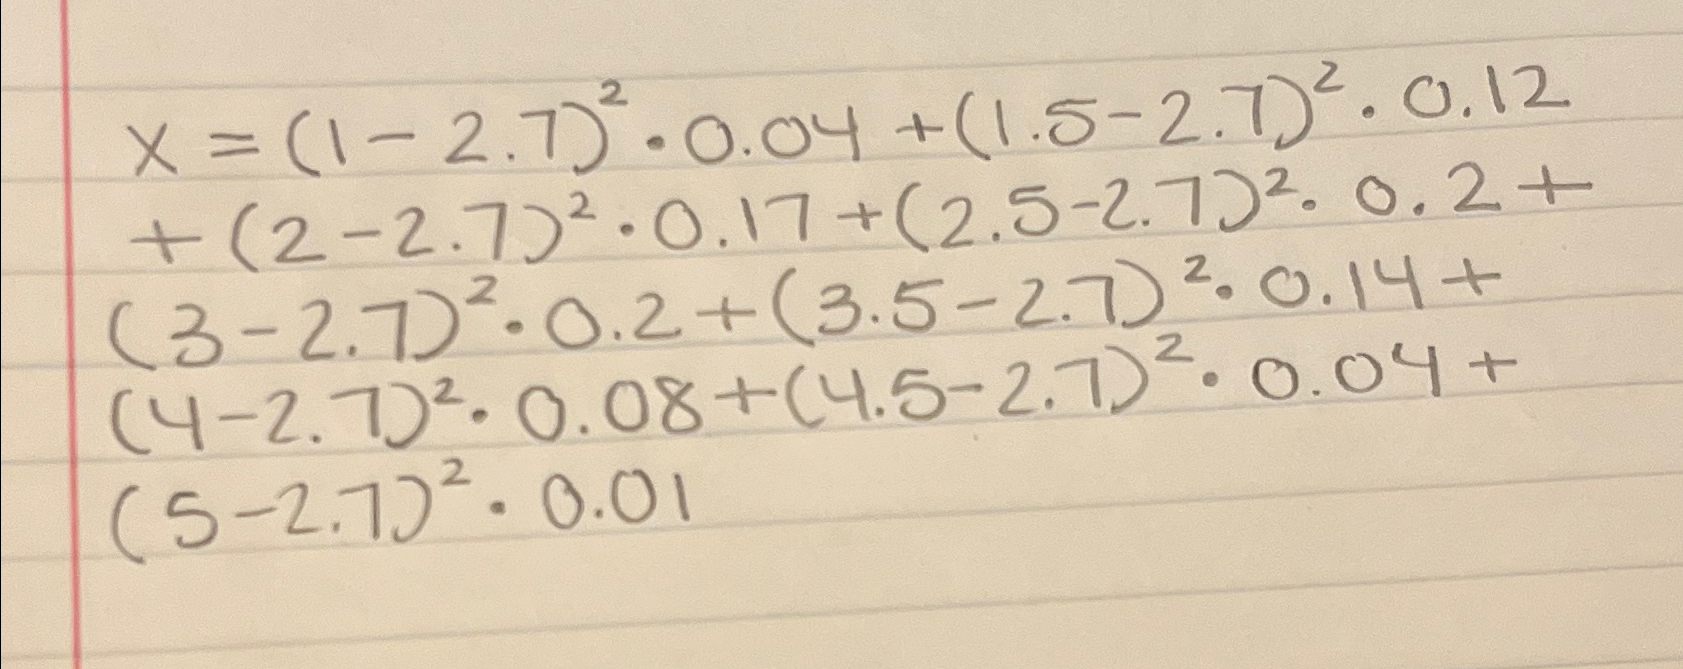 x = (1 - 2.7)² · 0.04 + (1.5 - 2.7)² · 0.12
+ (2 - 2.7)² · 0.17 + (2.5 - 2.7)² · 0.2 +
(3 - 2.7)² · 0.2 + (3.5 - 2.7)² · 0.14 +
(4 - 2.7)² · 0.08 + (4.5 - 2.7)² · 0.04 +
(5 - 2.7)² · 0.01